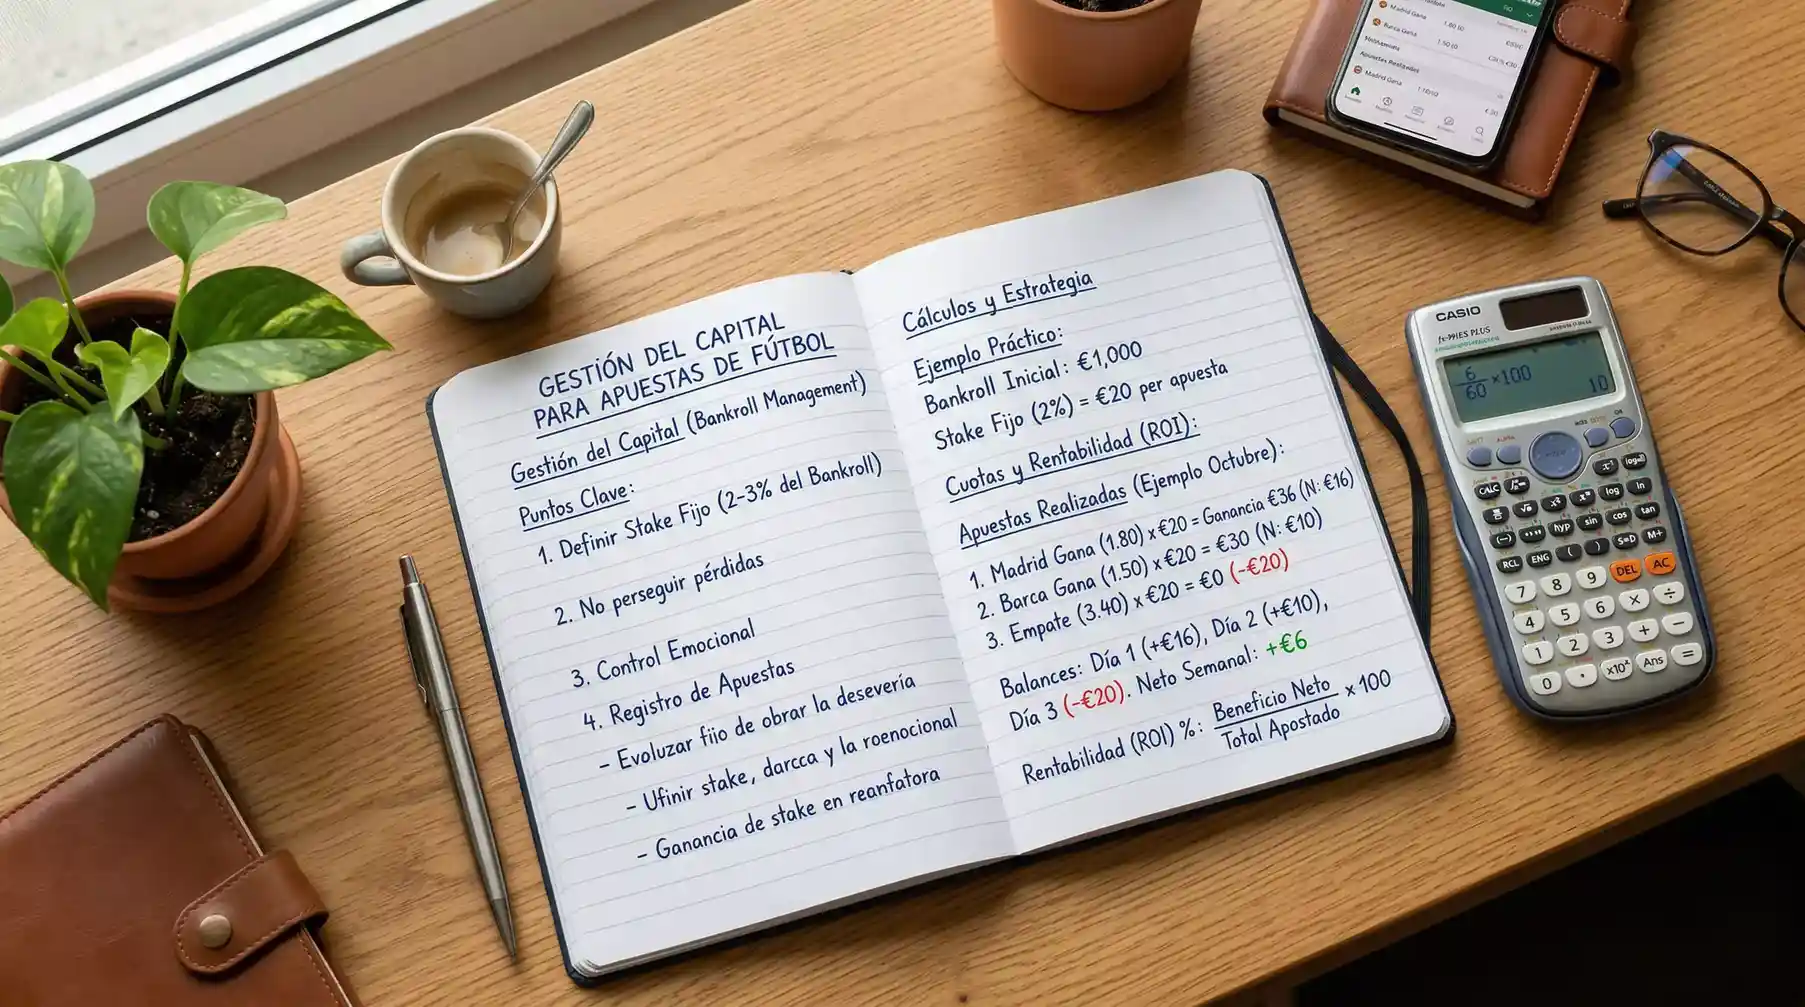 GESTIÓN DEL CAPITAL
PARA APUESTAS DE FÚTBOL
Gestión del Capital (Bankroll Management)
Puntos Clave:
1. Definir Stake Fijo (2-3% del Bankroll)
2. No perseguir pérdidas
3. Control Emocional
4. Registro de Apuestas
- Evoluzar fijo de obrar la desevería
- Ufinir stake, darcca y la roenocional
- Ganancia de stake en reanfatora
Cálculos y Estrategia
Ejemplo Práctico:
Bankroll Inicial: €1,000
Stake Fijo (2%) = €20 per apuesta
Cuotas y Rentabilidad (ROI):
Apuestas Realizadas (Ejemplo Octubre):
1. Madrid Gana (1.80) x €20 = Ganancia €36 (N: €16)
2. Barca Gana (1.50) x €20 = €30 (N: €10)
3. Empate (3.40) x €20 = €0 (-€20)
Balances: Día 1 (+€16), Día 2 (+€10),
Día 3 (-€20). Neto Semanal: +€6
Rentabilidad (ROI) %: Beneficio Neto / Total Apostado x 100
Madrid Gana
Madrid Gana
CASIO
6/60 x100
10
CALC
hyp sin cos tan
RCL ENG ( ) S=D M+
7 8 9 DEL AC
4 5 6 × ÷
1 2 3 + −
0 . x10ˣ Ans =